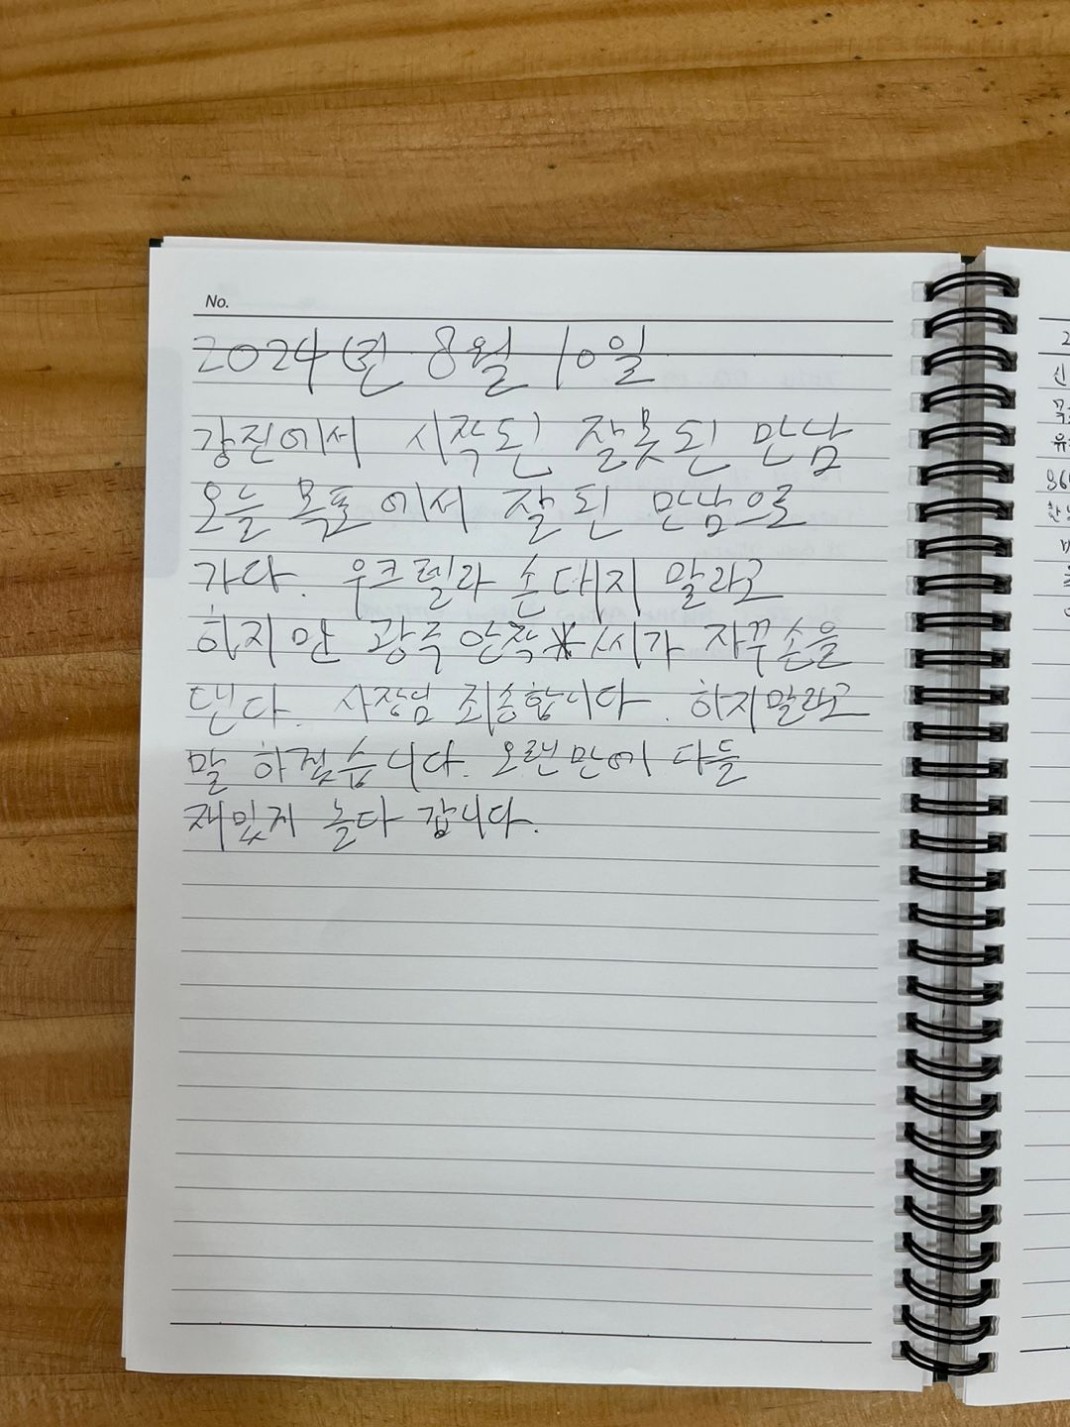 No.
2024년 8월 10일
강진에서 시작된 잘못된 만남
오늘 목포에서 잘된 만남으로
가다. 우크렐라 손대지 말라고
하지만 광주 안작* 씨가 자꾸손을
댄다. 사장님 죄송합니다. 하지말라고
말 하겠습니다. 오랜만에 다들
재밌게 놀다 갑니다.